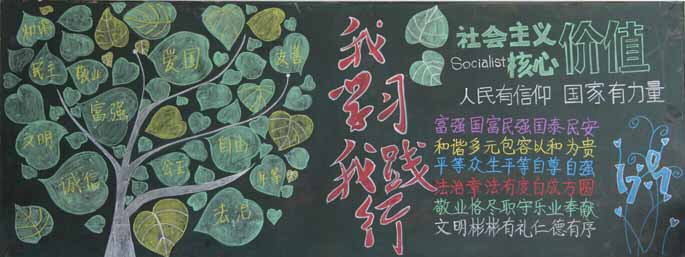 和谐
民主
敬业
爱国
友善
富强
文明
自由
公正
平等
诚信
法治
我学习
我践行
社会主义
Socialist 核心 价值
人民有信仰 国家有力量
富强国富民强国泰民安
和谐多元包容以和为贵
平等众生平等自尊自强
法治章法有度自成方圆
敬业恪尽职守乐业奉献
文明彬彬有礼仁德有序